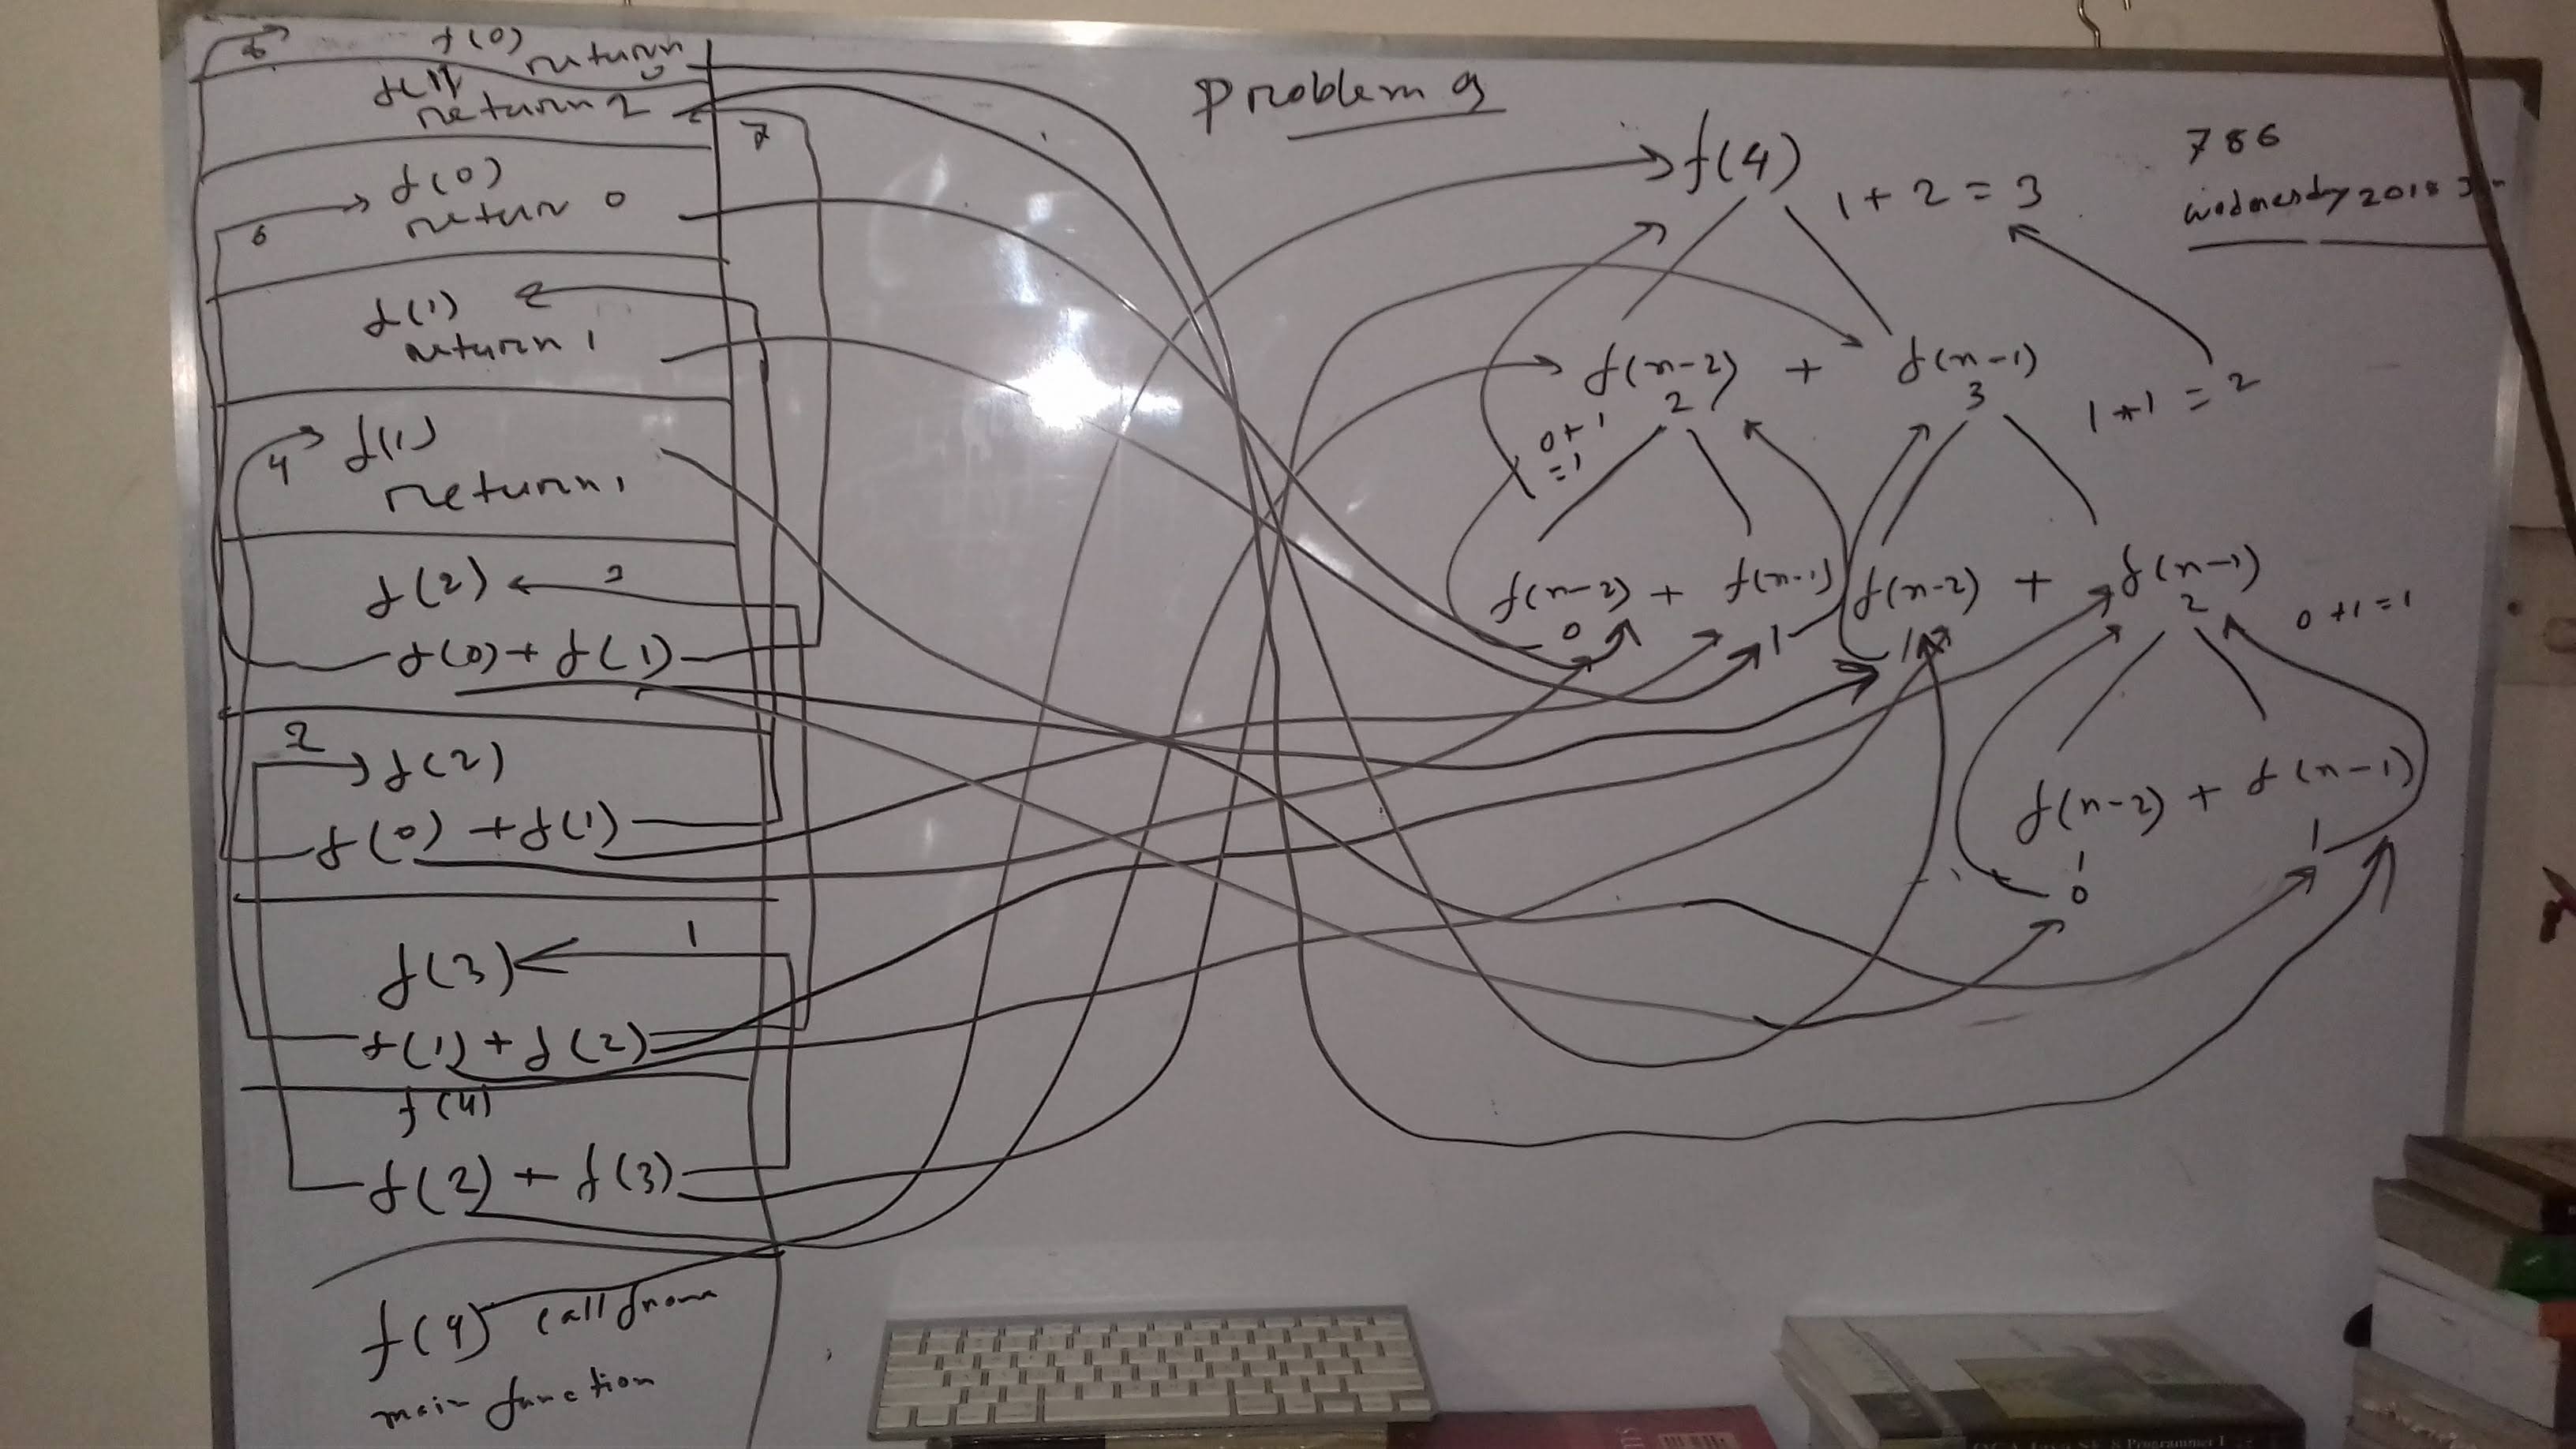 f(0)
return
f(1)
return 2
7
f(0)
return 0
6
f(1)
return 1
4
f(1)
return 1
f(2)
f(0) + f(1)
2
f(2)
f(0) + f(1)
1
f(3)
f(1) + f(2)
f(4)
f(2) + f(3)
f(4) call from
main function
Problem 9
786
wednesday 2018
f(4)
1 + 2 = 3
f(n-2) + f(n-1)
2
3
1+1 = 2
0+1
=1
f(n-2) + f(n-1)
0
1
f(n-2) + f(n-1)
1
2
0+1=1
f(n-2) + f(n-1)
0
1